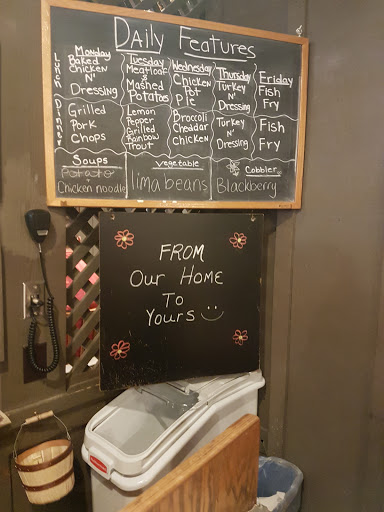 Daily Features
Lunch
Monday
Baked
Chicken
N'
Dressing
Tuesday
Meatloaf
&
Mashed
Potatoes
Wednesday
Chicken
Pot
Pie
Thursday
Turkey
N'
Dressing
Friday
Fish
Fry
Dinner
Grilled
Pork
Chops
Lemon
Pepper
Grilled
Rainbow
Trout
Broccoli
Cheddar
Chicken
Turkey
N'
Dressing
Fish
Fry
Soups
Potato
Chicken noodle
Vegetable
lima beans
Cobbler
Blackberry
FROM
Our Home
To
Yours